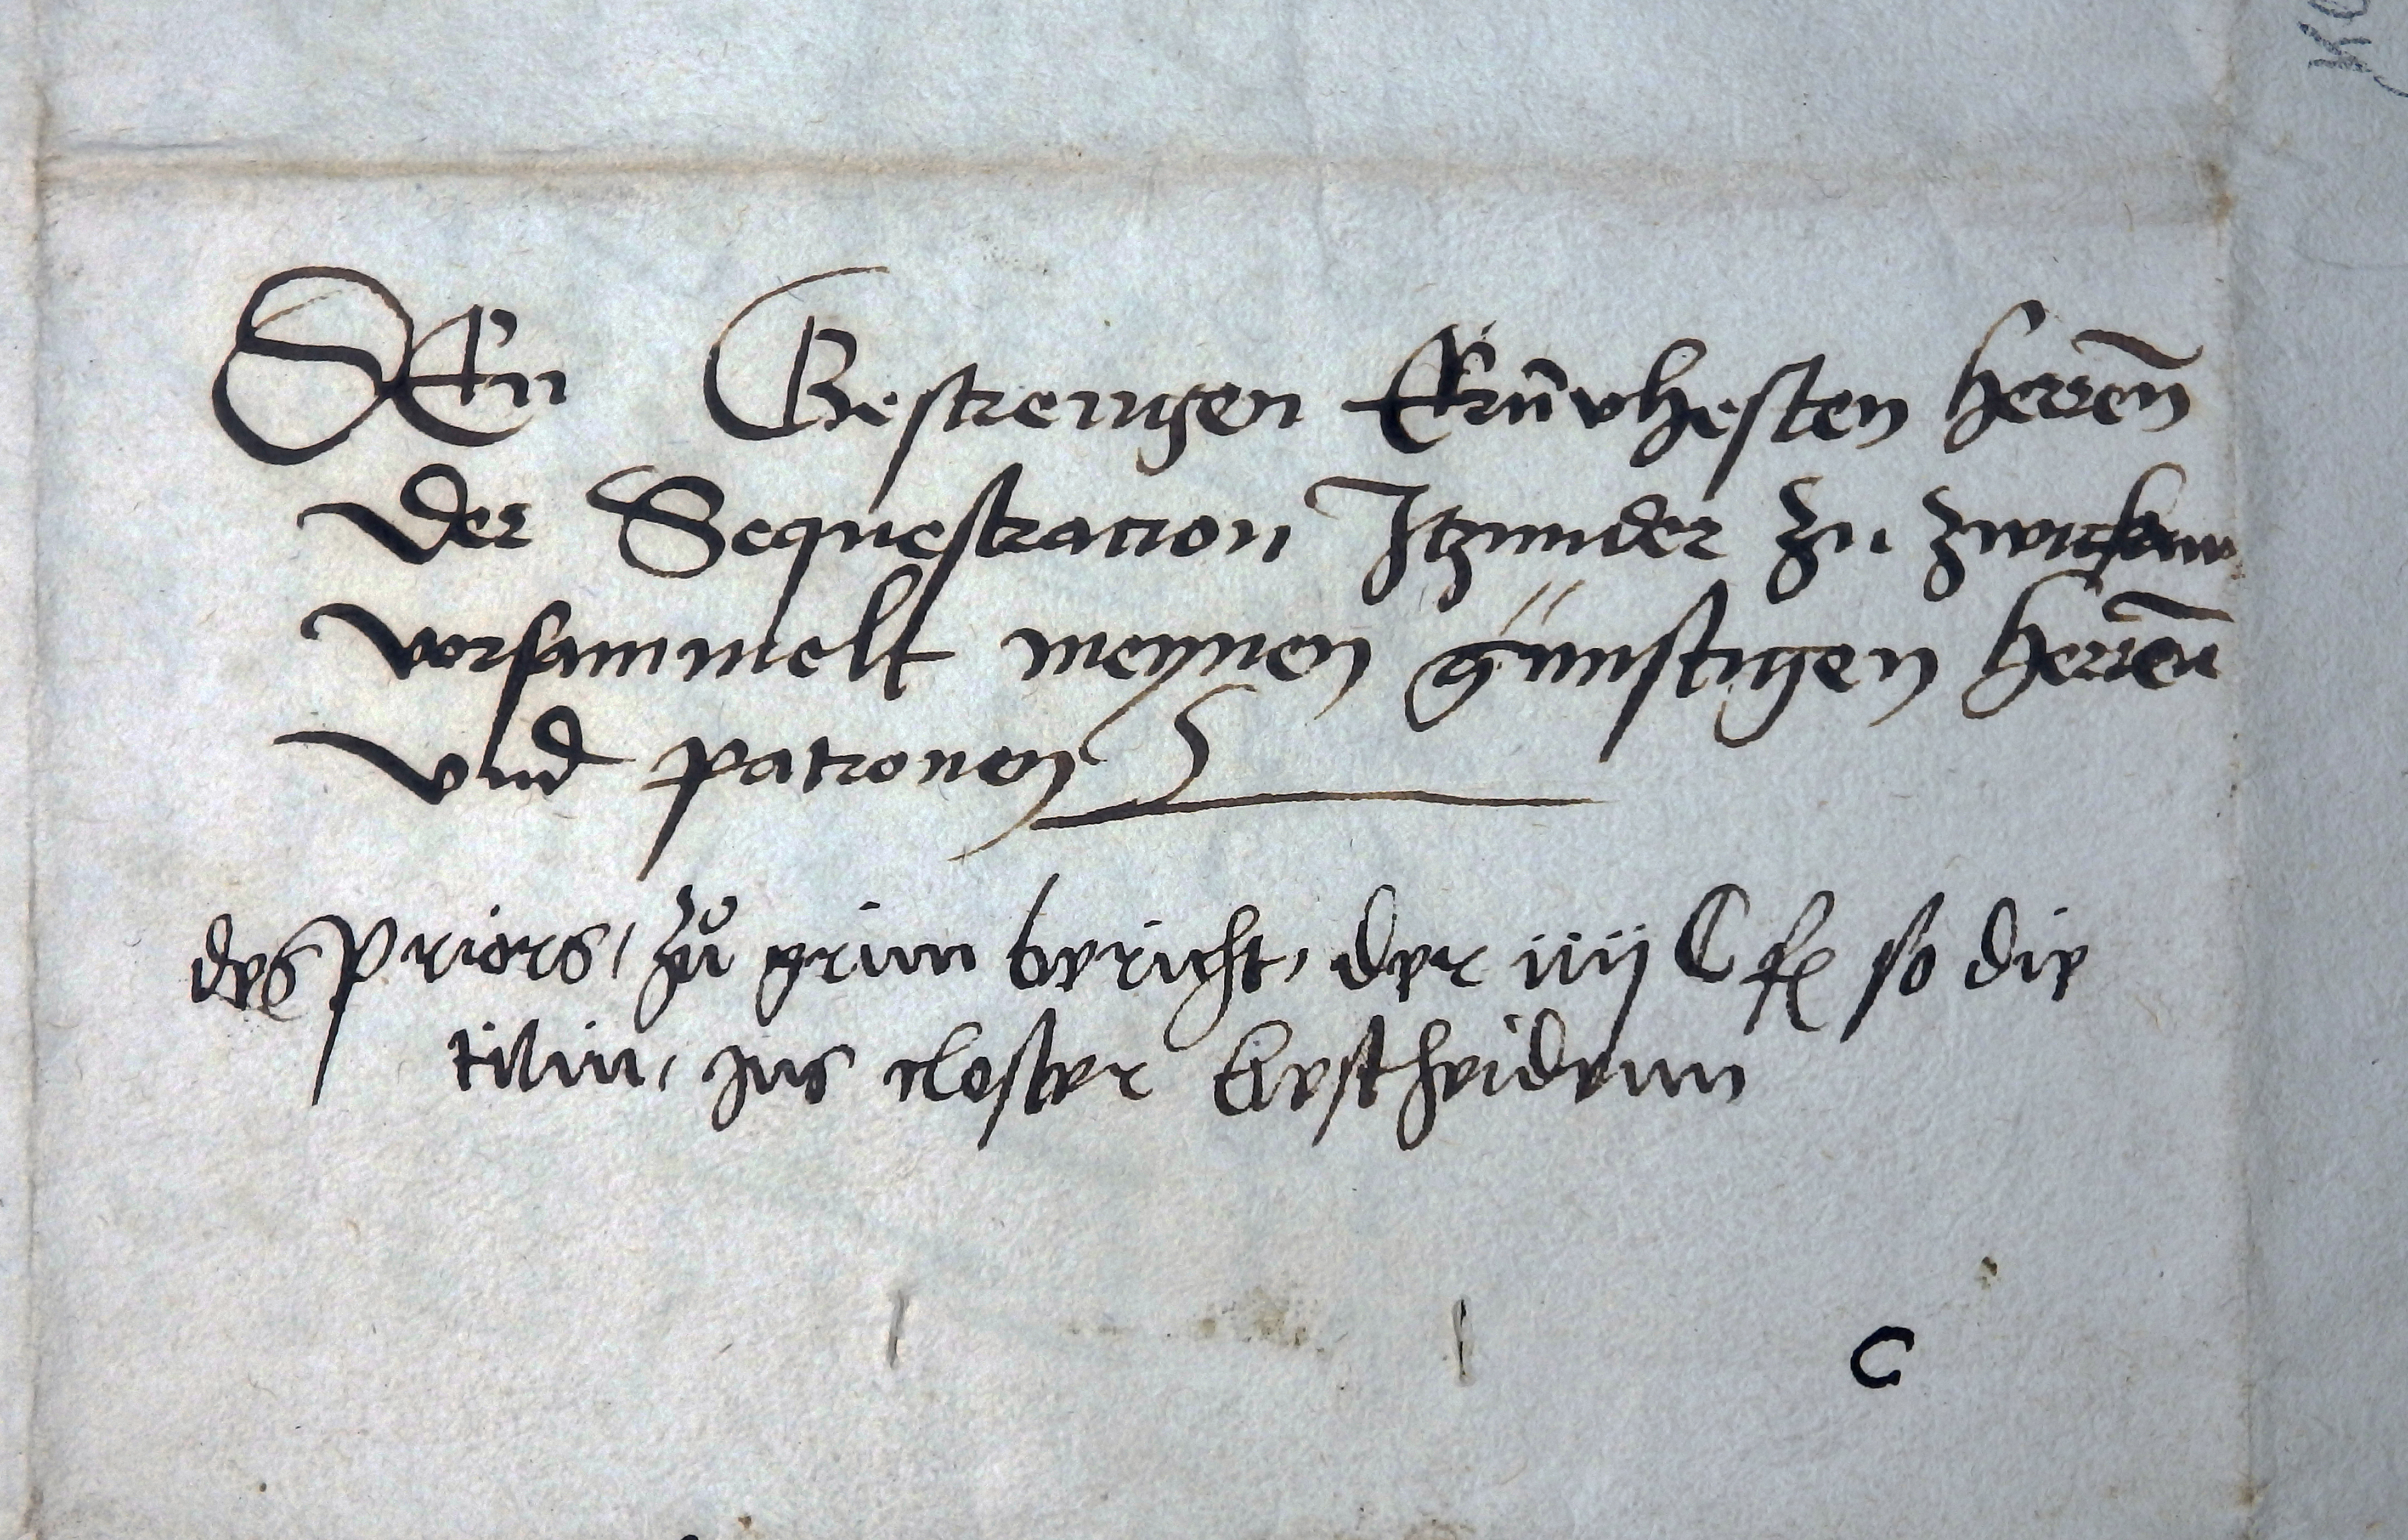 DEn Gestrengen Ernvhesten herren
der Sequestracion Itzunder zu zwickaw
vorsammelt meynen günstigen herren
vnd patronen
des Priors, zů grim bericht, der iiij C fl so die
tilin, ins closter bescheidenn
C